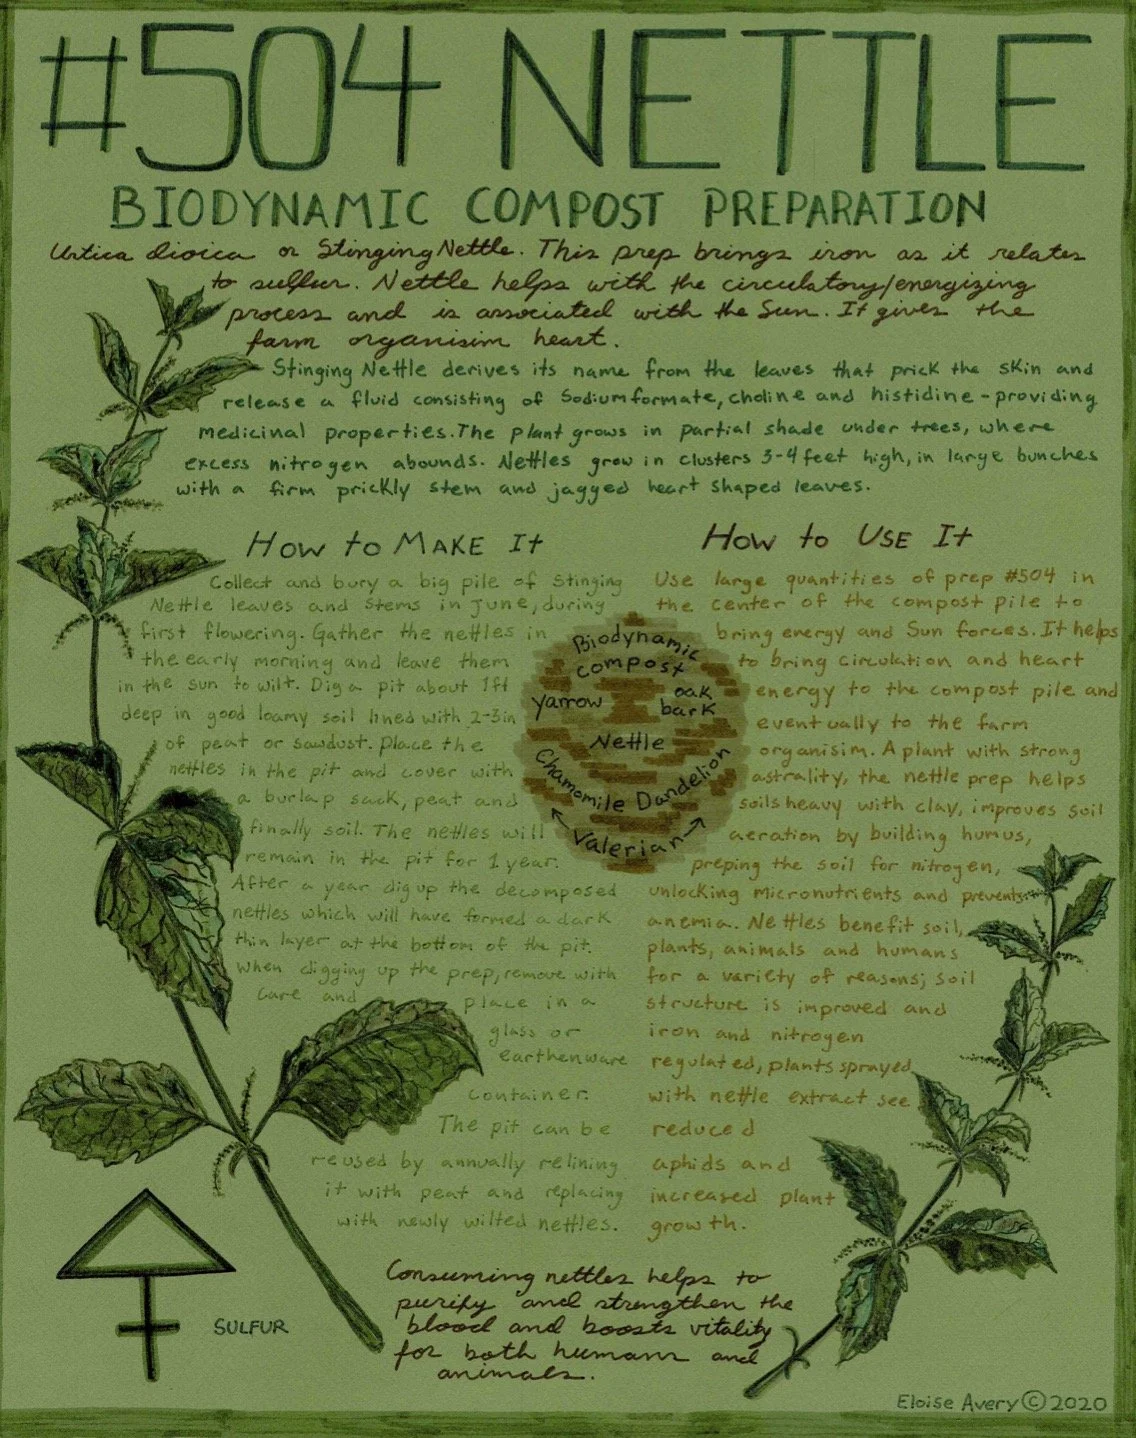 #504 NETTLE
BIODYNAMIC COMPOST PREPARATION
Urtica dioica or Stinging Nettle. This prep brings iron as it relates
to sulfur. Nettle helps with the circulatory/energizing
process and is associated with the Sun. It gives the
farm organisim heart.
Stinging Nettle derives its name from the leaves that prick the skin and
release a fluid consisting of Sodium formate, choline and histidine - providing
medicinal properties. The plant grows in partial shade under trees, where
excess nitrogen abounds. Nettles grow in clusters 3-4 feet high, in large bunches
with a firm prickly stem and jagged heart shaped leaves.
How to Make It
Collect and bury a big pile of Stinging
Nettle leaves and stems in June, during
first flowering. Gather the nettles in
the early morning and leave them
in the sun to wilt. Dig a pit about 1ft
deep in good loamy soil lined with 2-3in
of peat or sawdust. Place the
nettles in the pit and cover with
a burlap sack, peat and
finally soil. The nettles will
remain in the pit for 1 year.
After a year dig up the decomposed
nettles which will have formed a dark
thin layer at the bottom of the pit.
When digging up the prep, remove with
care and place in a
glass or
earthenware
container.
The pit can be
reused by annually relining
it with peat and replacing
with newly wilted nettles.
Biodynamic
compost
yarrow
oak
bark
Nettle
Chamomile Dandelion
Valerian
How to Use It
Use large quantities of prep #504 in
the center of the compost pile to
bring energy and Sun forces. It helps
to bring circulation and heart
energy to the compost pile and
eventually to the farm
organisim. A plant with strong
astrality, the nettle prep helps
soils heavy with clay, improves soil
aeration by building humus,
preping the soil for nitrogen,
unlocking micronutrients and prevents
anemia. Nettles benefit soil,
plants, animals and humans
for a variety of reasons; soil
structure is improved and
iron and nitrogen
regulated, plants sprayed
with nettle extract see
reduced
aphids and
increased plant
growth.
SULFUR
Consuming nettles helps to
purify and strengthen the
blood and boosts vitality
for both humans and
animals.
Eloise Avery © 2020